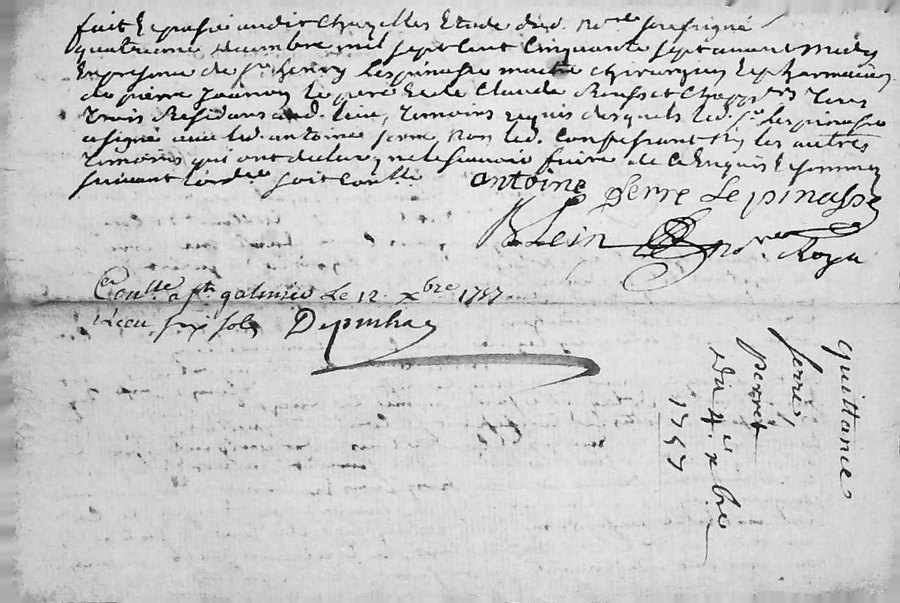 fait Et passé audit Chazelles Etude dud. No.re soussigné
quatrieme decembre mil sept Cent Cinquante sept avant midy
En presence de s.r henry Lespinasse maitre chirurgien Et
de pierre le pere Et de Claude Chapp.ers tous
trois Residans aud. lieu, temoins requis desquels led. s.r lespinasse
a signé avec led. antoine serre, non led. Confessant Ny les autres
temoins qui ont declaré ne le scavoir faire de Ce Enquis Et sommés
suivant l'ord.ce soit Con.llé
antoine serre Lespinasse
Blein No.re Roya
Con.llé a s.t galmier Le 12. xbre 1757
Receu six sols Depinhac
quittance
serre,
perret
du 4.e xbre
1757